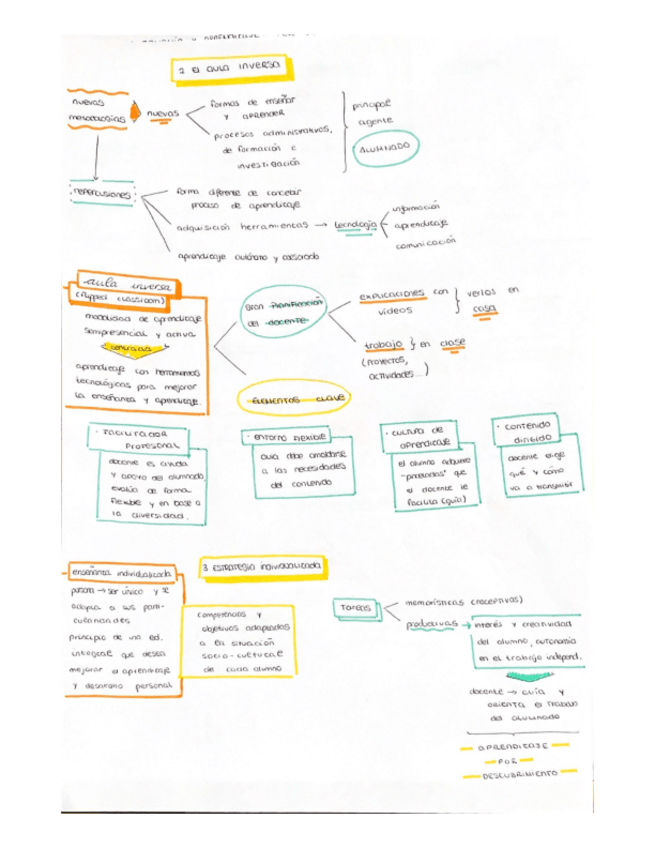 2 El aula inversa
nuevas
metodologías
nuevas
formas de enseñar
y aprender
procesos administrativos,
de formación e
investigación
principal
agente
ALUMNADO
repercusiones
forma diferente de concebir
proceso de aprendizaje
adquisición herramientas → tecnología
información
aprendizaje
comunicación
aprendizaje autónomo y asesorado
aula inversa
(flipped classroom)
modalidad de aprendizaje
semipresencial y activa
aprendizaje con herramientas
tecnológicas para mejorar
la enseñanza y aprendizaje.
gran planificación
del docente
explicaciones con
vídeos
verlos en
casa
trabajo } en clase
(proyectos,
actividades...)
ELEMENTOS CLAVE
· FACILITADOR
PROFESIONAL
docente es ayuda
y apoyo del alumnado,
evalúa de forma
flexible y en base a
la diversidad.
· entorno flexible
aula debe amoldarse
a las necesidades
del contenido
· cultura de
aprendizaje
el alumno adquiere
"prestados" que
el docente le
facilita (guía)
· contenido
dirigido
docente elige
qué y cómo
va a transmitir
enseñanza individualizada
persona → ser único y se
adapta a sus parti-
cularidades
principio de una ed.
integral que desea
mejorar el aprendizaje
y desarrollo personal
3 Estrategia individualizada
competencias y
objetivos adaptados
a la situación
socio-cultural
de cada alumno
TAREAS
memorísticas (receptivas)
productivas → interés y creatividad
del alumno, autonomía
en el trabajo independ.
docente → guía y
orienta el trabajo
del alumnado
APRENDIZAJE
POR
DESCUBRIMIENTO